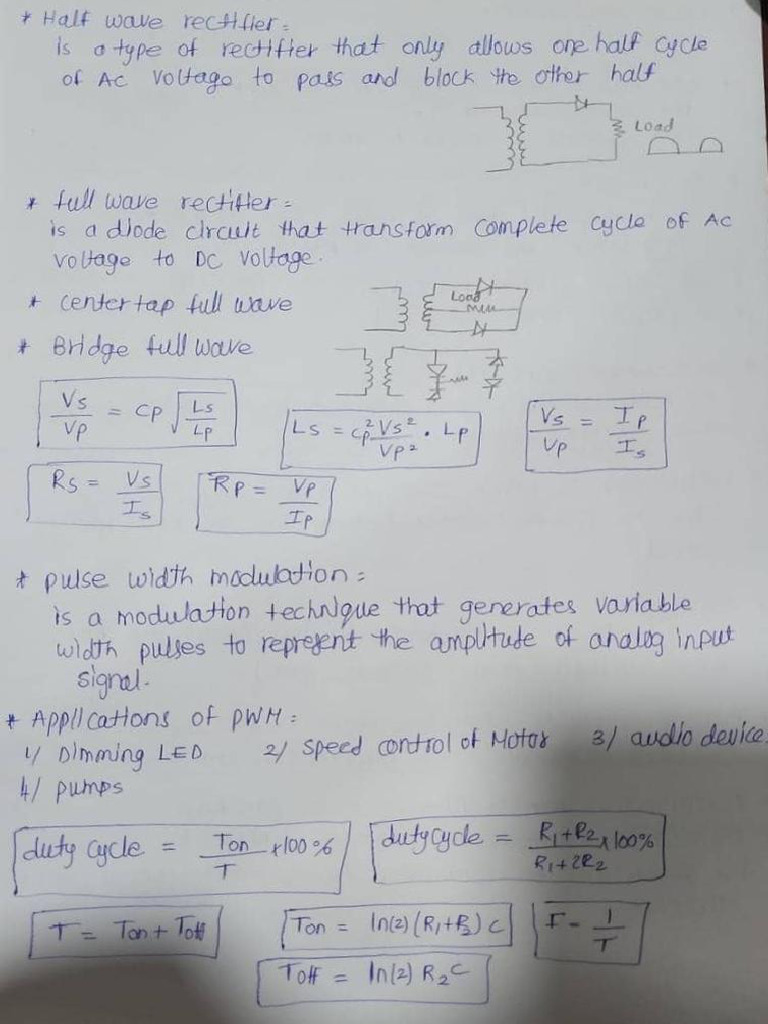 * Half wave rectifier =
is a type of rectifier that only allows one half cycle
of AC voltage to pass and block the other half
Load
* full wave rectifier =
is a diode circuit that transform complete cycle of AC
voltage to DC voltage.
* center tap full wave
Load
* Bridge full wave
Vs/Vp = Cp √(Ls/Lp)
Ls = Cp² Vs²/Vp² . Lp
Vs/Vp = Ip/Is
Rs = Vs/Is
Rp = Vp/Ip
* pulse width modulation =
is a modulation technique that generates variable
width pulses to represent the amplitude of analog input
signal.
* Applications of PWM =
1/ Dimming LED 2/ speed control of Motor 3/ audio device.
4/ pumps
duty cycle = Ton/T x100%
duty cycle = R₁+R₂/R₁+2R₂ x 100%
T = Ton + Toff
Ton = ln(2) (R₁+R₂) C
F = 1/T
Toff = ln(2) R₂C